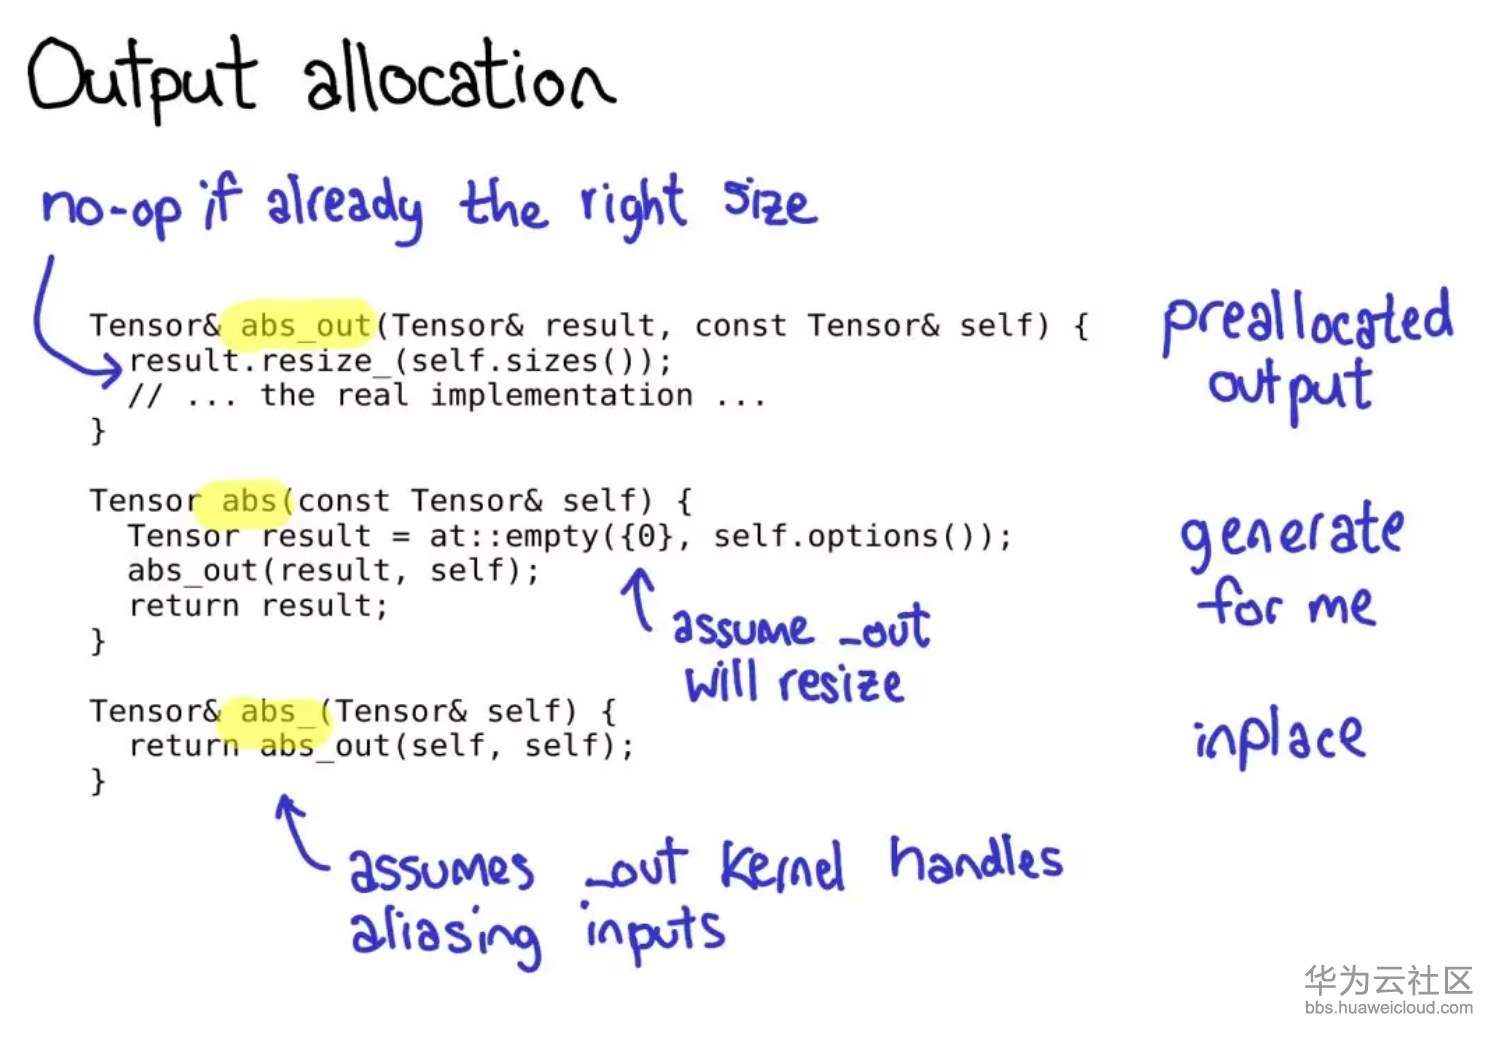 Output allocation
no-op if already the right size
Tensor& abs_out(Tensor& result, const Tensor& self) {
  result.resize_(self.sizes());
  // ... the real implementation ...
}
preallocated
output
Tensor abs(const Tensor& self) {
  Tensor result = at::empty({0}, self.options());
  abs_out(result, self);
  return result;
}
generate
for me
assume _out
will resize
Tensor& abs_(Tensor& self) {
  return abs_out(self, self);
}
inplace
assumes _out kernel handles
aliasing inputs
华为云社区
bbs.huaweicloud.com